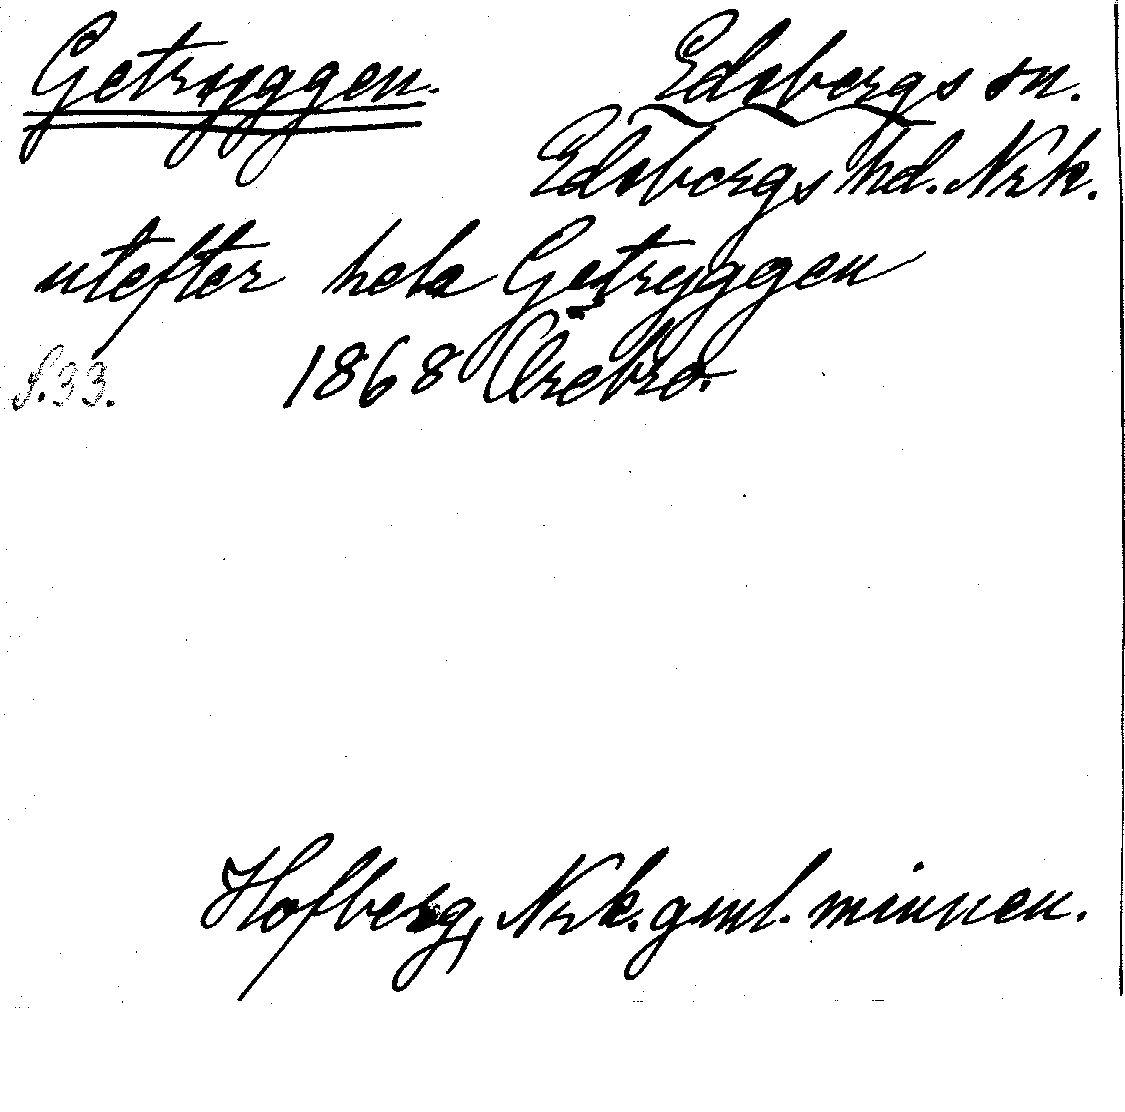 Getryggen.
Edsbergs sn.
Edsbergs hd. Nrk.
utefter hela Getryggen
S. 33.
1868 Örebro.
Hofberg, Nrk. gml. minnen.